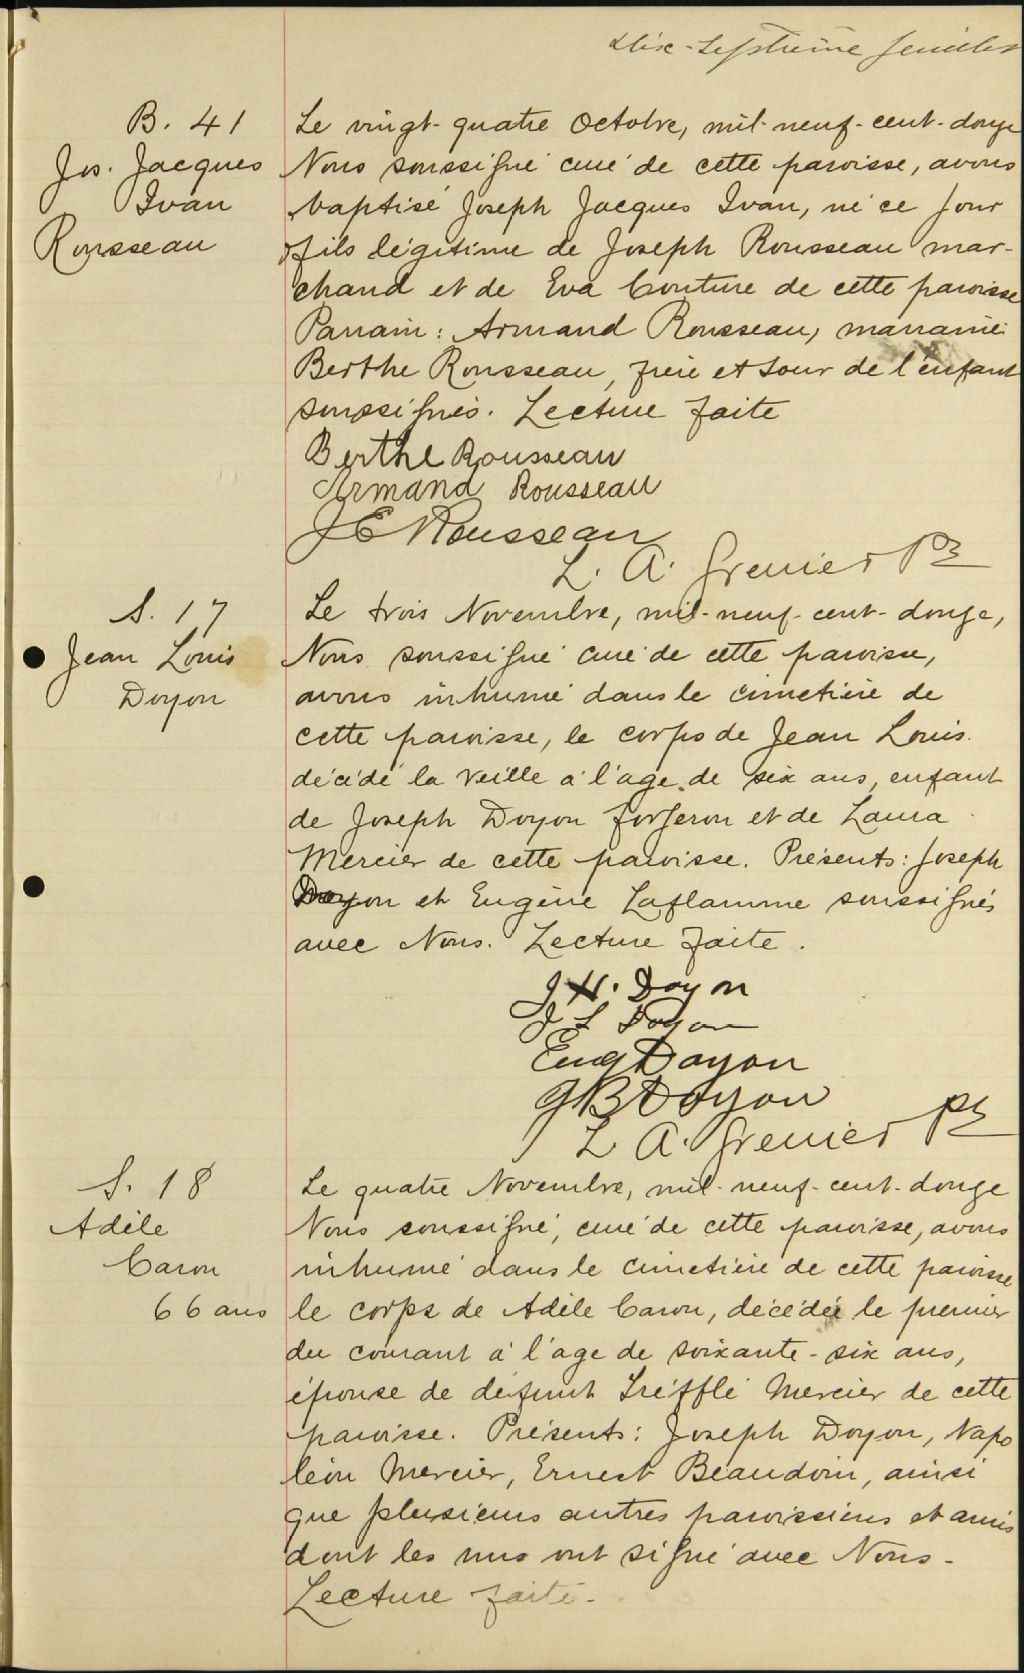 Dix-Septième feuillet
B. 41
Jos. Jacques
Ivan
Rousseau
Le vingt-quatre Octobre, mil-neuf-cent-douze
Nous soussigné curé de cette paroisse, avons
baptisé Joseph Jacques Ivan, né ce jour
fils légitime de Joseph Rousseau mar-
chand et de Eva Couture de cette paroisse
Parrain: Armand Rousseau, marraine:
Berthe Rousseau, frère et sœur de l'enfant
soussignés. Lecture faite
Berthe Rousseau
Armand Rousseau
J E Rousseau
L. A. Grenier Ptr
S. 17
Jean Louis
Doyon
Le trois Novembre, mil-neuf-cent-douze,
Nous soussigné curé de cette paroisse,
avons inhumé dans le cimetière de
cette paroisse, le corps de Jean Louis
décédé la veille à l'age de six ans, enfant
de Joseph Doyon forgeron et de Laura
Mercier de cette paroisse. Présents: Joseph
Doyon et Eugène Laflamme soussignés
avec Nous. Lecture faite.
J H. Doyon
J L Doyon
Eug Doyon
J B Doyon
L. A. Grenier Ptr
S. 18
Adèle
Caron
66 ans
Le quatre Novembre, mil-neuf-cent-douze
Nous soussigné, curé de cette paroisse, avons
inhumé dans le cimetière de cette paroisse
le corps de Adèle Caron, décédée le premier
du courant à l'age de soixante-six ans,
épouse de défunt Trefflé Mercier de cette
paroisse. Présents: Joseph Doyon, Napo
léon Mercier, Ernest Beaudoin, ainsi
que plusieurs autres paroissiens et amis
dont les uns ont signé avec Nous-
Lecture faite-